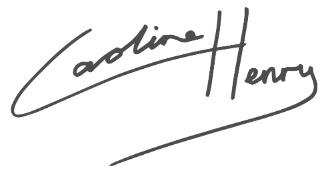 Caroline Henry